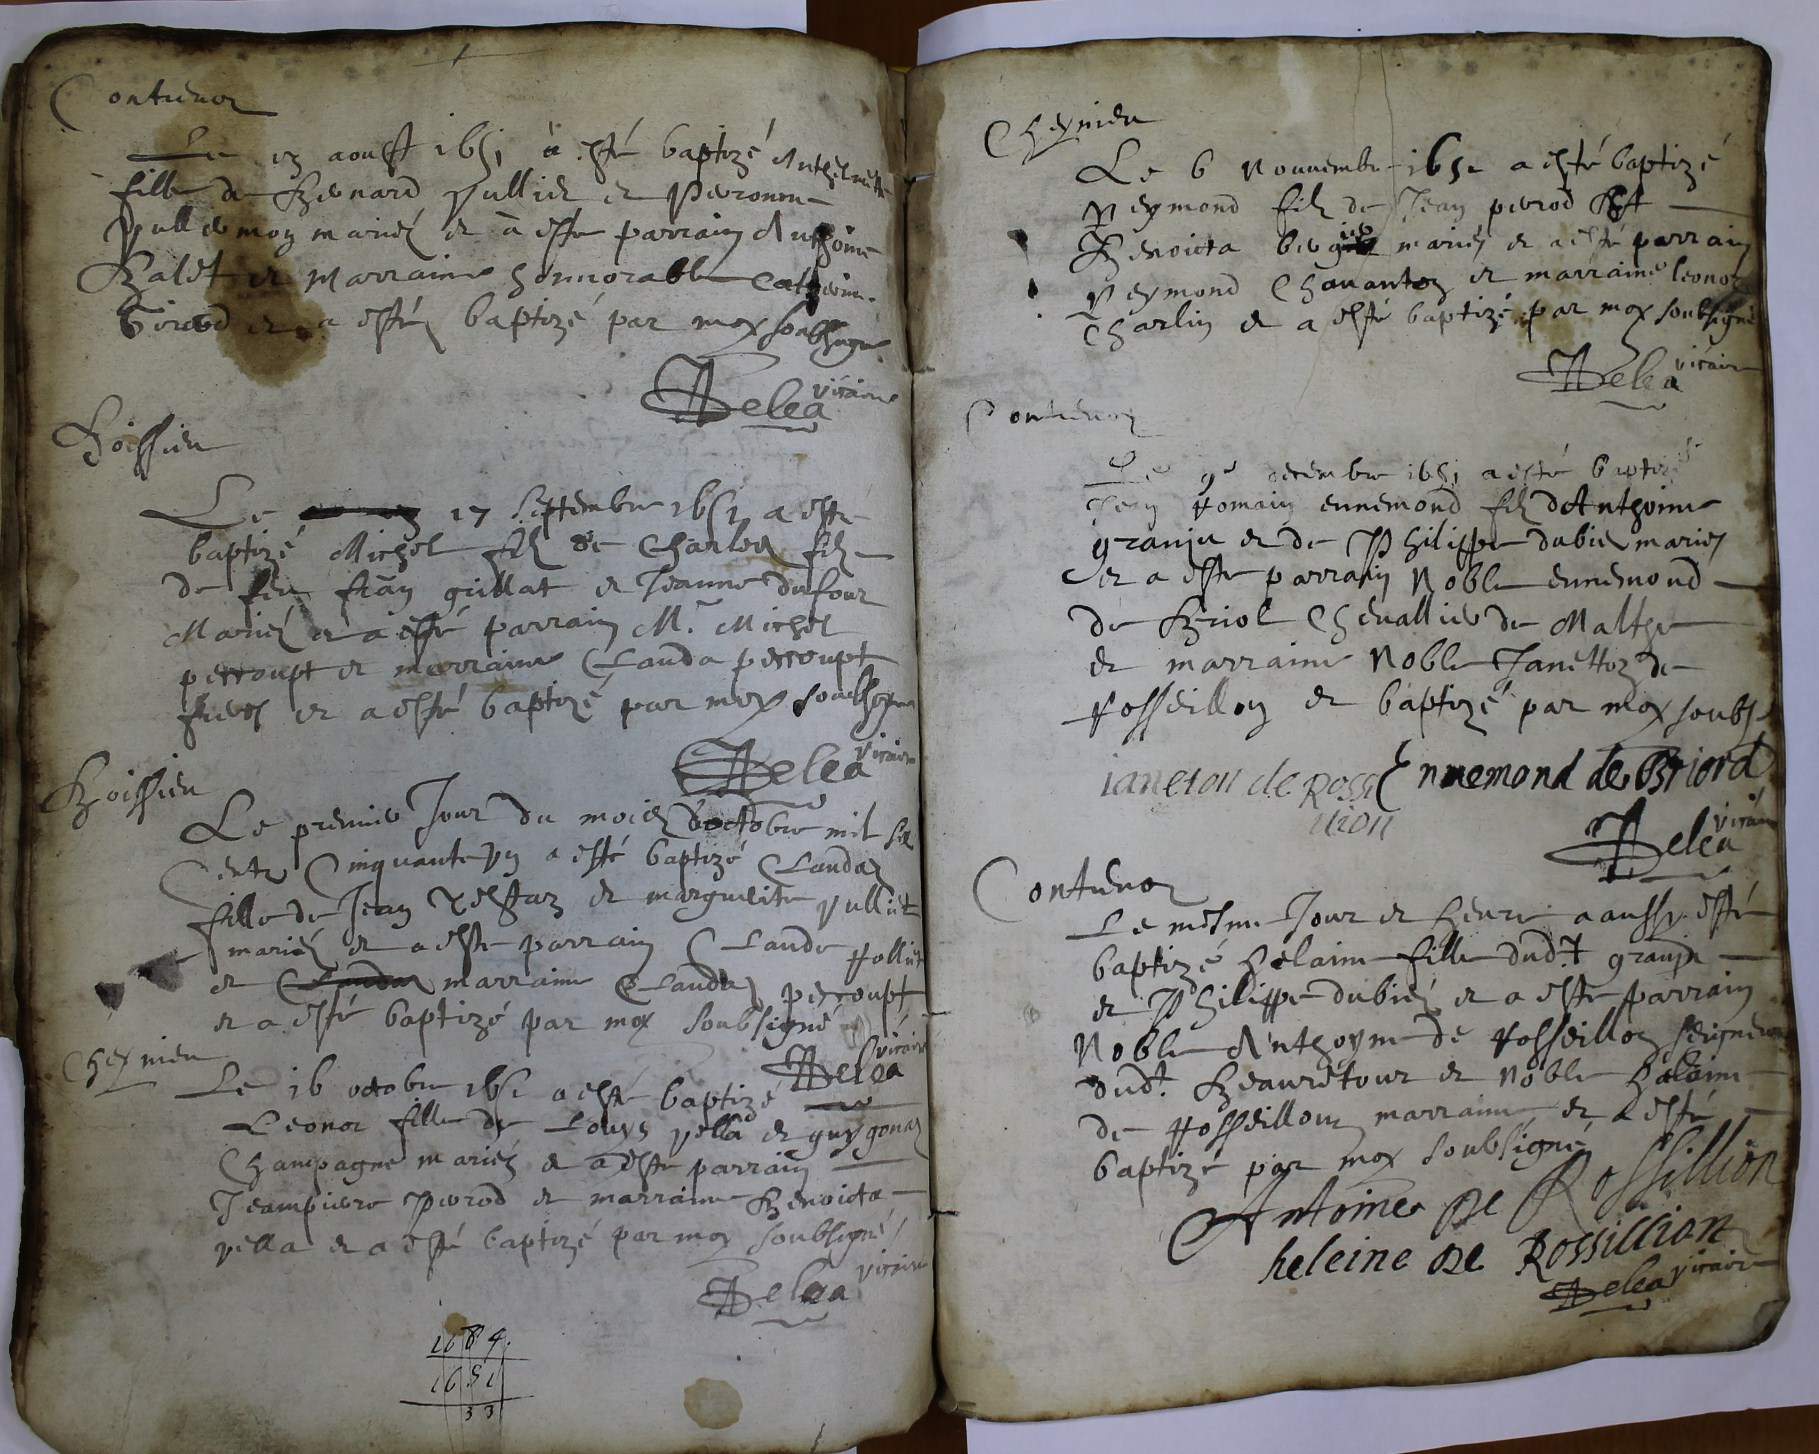 Contrevoz
Le aoust 1651 à esté baptizé Anthelmette
fille de Bernard Jullier et Peronne
Vullermoz mariez et à esté parrain Anthoine
Balet et Marraine honnorable Catherine
Girod et a esté baptizé par moy soubsigné
Delea vicaire
Boissieu
Le 17 septembre 1651 a esté
baptizé Michel filz de Charles filz
de feu fran gillat et Jeanne dufour
Mariez et a esté parrain M.e Michel
perroupt et marraine Clauda perroupt
freres et a esté baptizé par moy soubsigné
Delea vicaire
Boissieu
Le premier Jour du mois doctobre mil six
Cents Cinquante un a esté baptizé Clauda
fille de Jean et marguerite vulliet
mariez et a esté parrain Claude
et Claudaz marraine Claudaz perroupt
et a esté baptizé par moy soubsigné
Delea vicaire
Cheynieu
Le 16 octobre 1651 a esté baptizé
Leonor fille de Louys vella et guygonaz
Champagne mariez et a esté parrain
Jeanpierre perrod et marraine Benoicta
vella et a esté baptizé par moy soubsigné
Delea vicaire
1684
1651
33
Cheynieu
Le 6 Nouuembre 1651 a esté baptizé
Reymond filz de Jean perrod et
Benoicta mariez et a esté parrain
Reymond Chauanton et marraine leonor
Charlin et a esté baptizé par moy soubsigné
Delea vicaire
Contrevoz
Le 9e decembre 1651 a esté baptizé
Jean Romain ennemond filz dAnthoine
granju et de Philippe dubier mariez
et a esté parrain Noble ennemond
de Briol Cheuallier de Malthe
et marraine Noble Janetton de
Rosseillon et baptizé par moy soubs
ianeton de Rossi Ennemond de Briord
llion
Delea vicaire
Contrevoz
Le mesme Jour et heure a aussy esté
baptizé helaine fille dud.t granju
et Philippe dubier et a esté parrain
Noble Anthoyne de Rosseillon seigneur
dud.t Beauretour et Noble helaine
de Rosseillon marraine et a esté
baptizé par moy soubsigné
Antoine De Rossillion
heleine De Rossillion
Delea vicaire